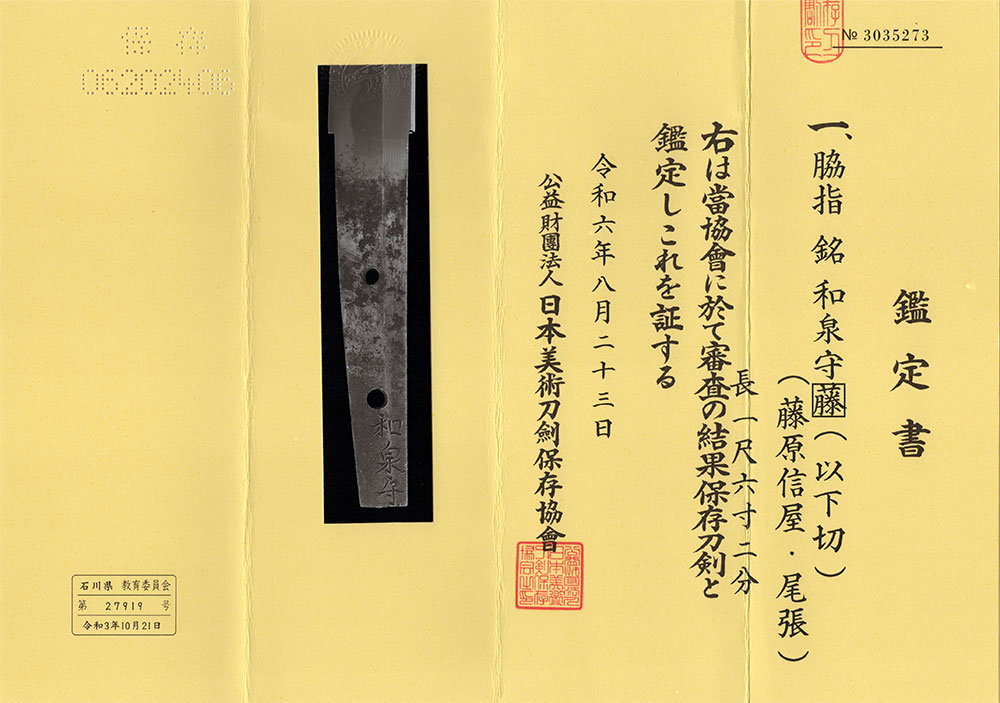 № 3035273
鑑定書
一、脇指 銘 和泉守藤(以下切)
(藤原信屋・尾張)
長一尺六寸二分
右は當協會に於て審査の結果保存刀剣と
鑑定しこれを証する
令和六年八月二十三日
公益財團法人日本美術刀劍保存協會
和泉守
保存
06202406
石川県 教育委員会
第 27919 号
令和3年10月21日